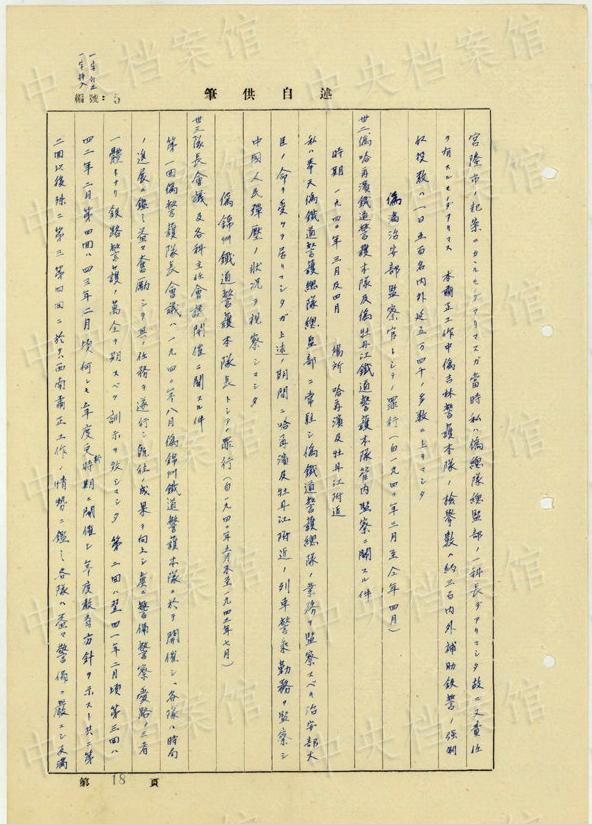 述自供筆
編號:5
一字訂正
一字挿入
宮隆市ノ起案ノカカルモノデアリマスガ當時私ハ偽總隊總監部ノ一科長デアリマシタ故ニ又責任
ヲ有スルモノデアリマス 本肅正工作中偽吉林警護本隊ノ檢擧数ハ約三百内外補助鉄警ノ強制
収投数ハ一日五百名内外延五万四千ノ多数ニ上リマシタ
偽満治安部監察官トシテノ罪行(自一九四〇年三月至仝年四月)
廿二偽哈爾濱鐵道警護本隊及偽牡丹江鐵道警護本隊管内監察ニ関スル件
時期 一九四〇年三月及四月 場所 哈爾濱及牡丹江附近
私ハ奉天偽鐵道警護總隊總監部ニ常駐シ偽鐵道警護總隊ノ業務ヲ監察スベク治安部大
臣ノ命ヲ受ケテ居リマシタガ上述ノ期間ニ哈爾濱及牡丹江附近ノ列車警乘勤務ヲ監察シ
中國人民彈壓ノ状況ヲ視察シマシタ
偽錦州鐵道警護本隊長トシテノ罪行(自一九四〇年五月末至一九四三年七月)
廿三隊長會議及各科主任會議開催ニ関スル件
第一回偽警護隊長會議ハ一九四〇年八月偽錦州鐵道警護本隊ニ於テ開催シ、各隊ハ時局
ノ進展ニ鑑ミ益々奮励シ其ノ任務ヲ遂行シ既往ノ成果ヲ向上シ眞ニ警備警察愛路ノ三者
一體トナリ鉄路警護ノ萬全ヲ期スベク訓示ヲ致シマシタ 第二回ハ翌四一年二月頃第三回ハ
四二年二月第四回ハ四三年二月頃何レモ年度更新時期ニ開催シ年度教育方針ヲ示スト共ニ第
二回以後殊ニ第三第四回ニ於テハ西南肅正工作ノ情勢ニ鑑ミ各隊ハ益々警備ヲ嚴ニシ反満
第 18 頁
中央档案馆